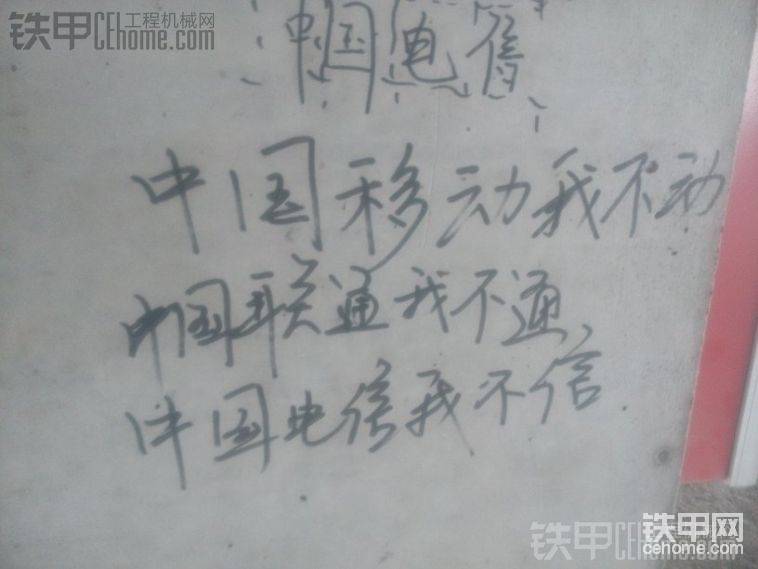 铁甲 工程机械网
CEhome.com
中国电信
中国移动我不动
中国联通我不通
中国电信我不信
铁甲网
cehome.com
铁甲CEhome.com